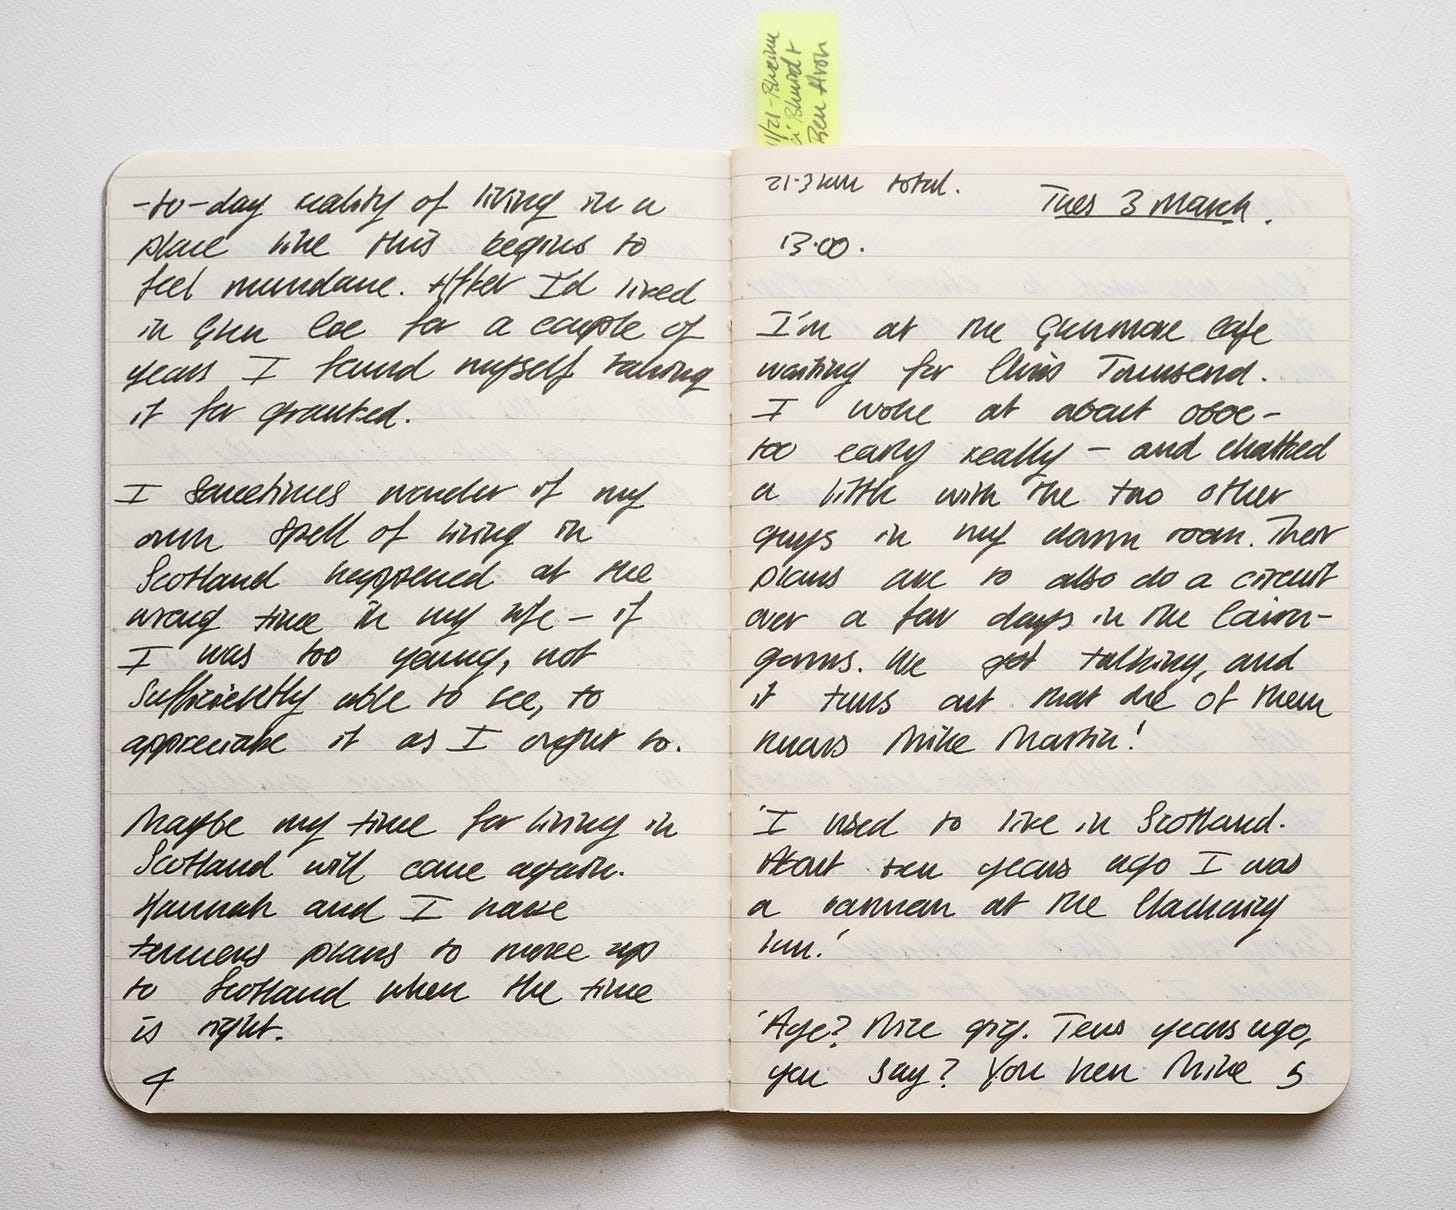 11/21 - Bheinn
Bhuird +
Ben Avon
-to-day reality of living in a
place like this begins to
feel mundane. After I'd lived
in Glen Coe for a couple of
years I found myself taking
it for granted.
I sometimes wonder if my
own spell of living in
Scotland happened at the
wrong time in my life – if
I was too young, not
sufficiently able to see, to
appreciate it as I ought to.
Maybe my time for living in
Scotland will come again.
Hannah and I have
tenuous plans to move up
to Scotland when the time
is right.
4
21.3km total.
Tues 3 March.
13.00.
I'm at the Glenmore Cafe
waiting for Chris Townsend.
I woke at about 0600 –
too early really – and chatted
a little with the two other
guys in my dorm room. Their
plans are to also do a circuit
over a few days in the Cairn-
gorms. We got talking, and
it turns out that one of them
knows Mike Martin!
'I used to live in Scotland.
About ten years ago I was
a barman at the Clachaig
Inn.'
'Aye? Nice gig. Tens years ago,
you say? You ken Mike
5